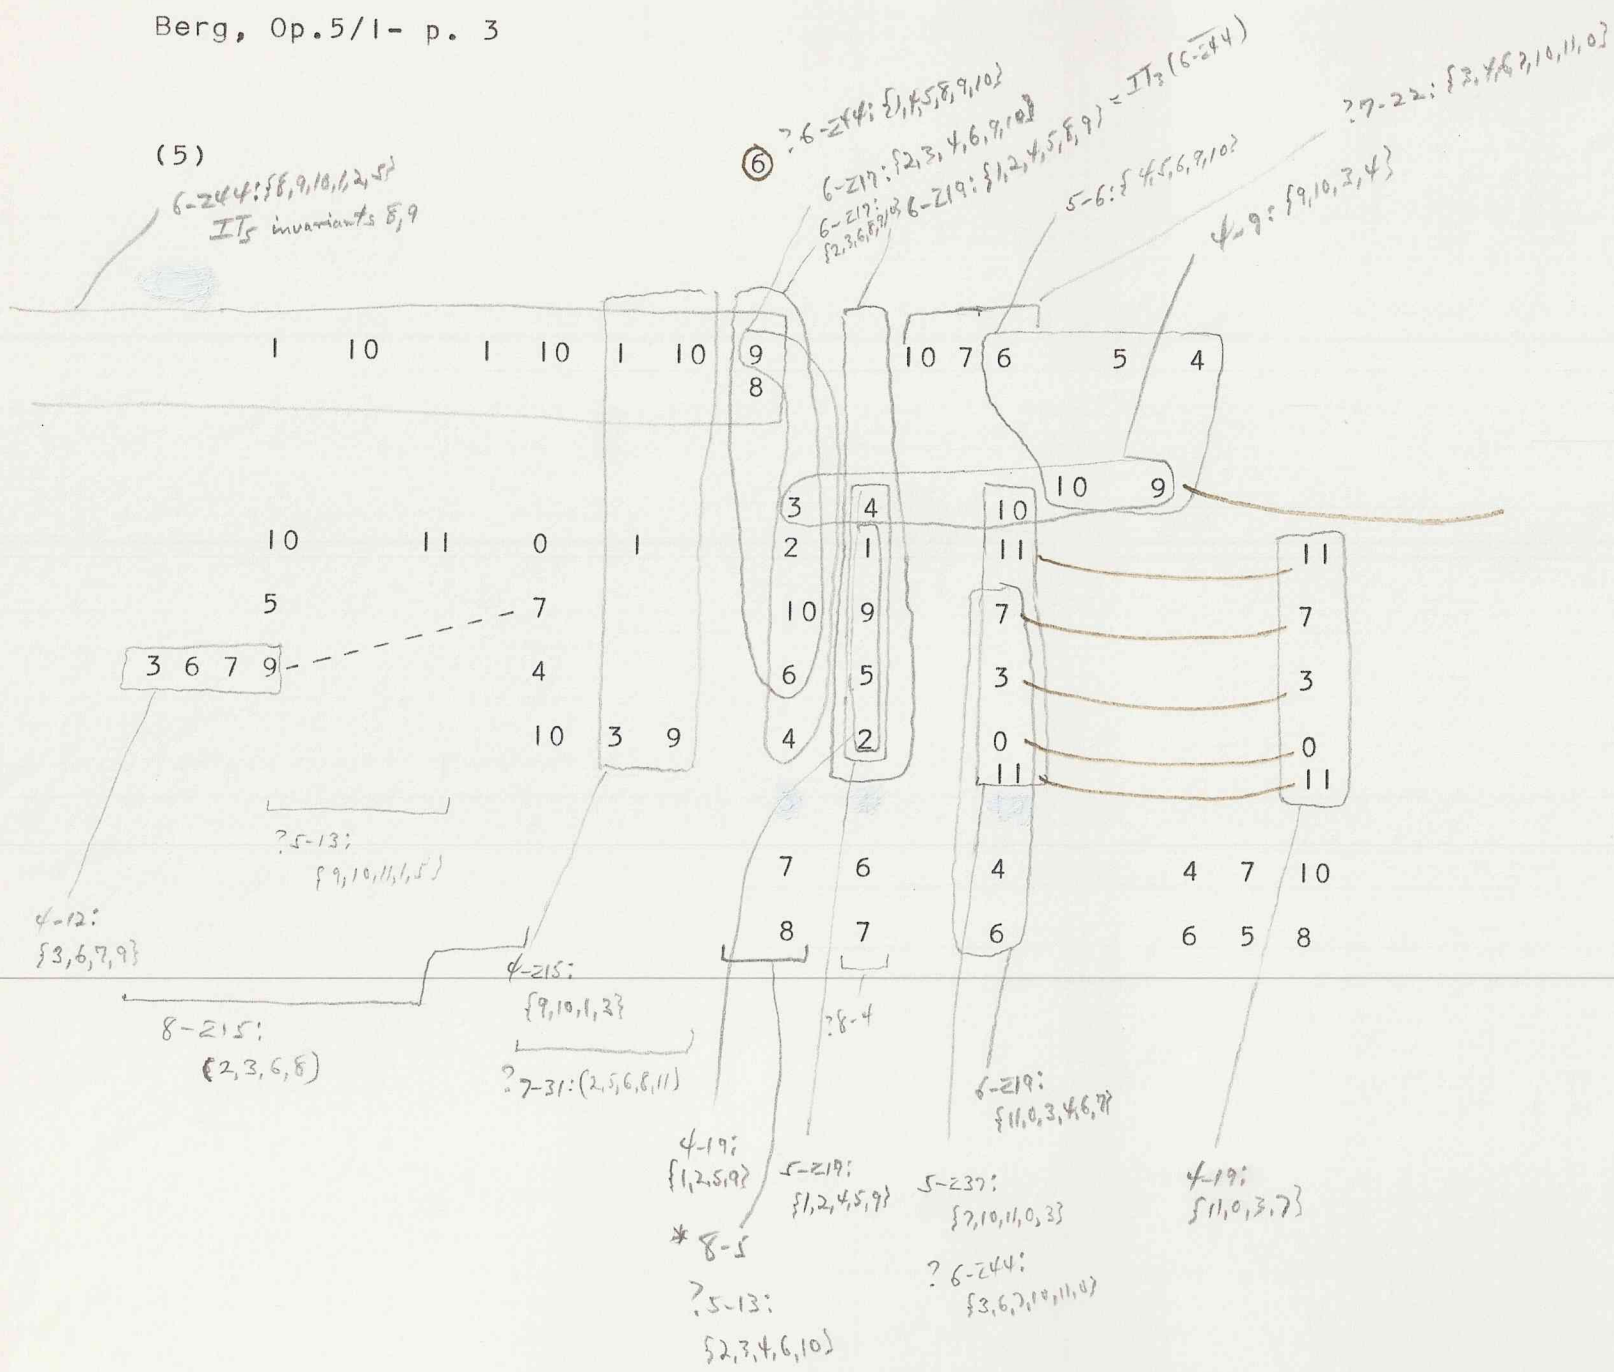 Berg, Op.5/1- p. 3
(5)
6-Z44:{8,9,10,1,2,5}
IT5 invariants 8,9
⑥
?6-Z44:{1,4,5,8,9,10}
6-Z17:{2,3,4,6,9,10}
6-Z17:
{2,3,6,8,9,10}
6-Z19:{1,2,4,5,8,9} = IT3(6-Z44)
5-6:{4,5,6,9,10}
?7-22:{3,4,6,7,10,11,0}
4-9:{9,10,3,4}
1 10 1 10 1 10 9 10 7 6 5 4
8
10 9
3 4 10
10 11 0 1 2 1 11 11
5 7 10 9 7 7
3 6 7 9 4 6 5 3 3
10 3 9 4 2 0 0
11 11
7 6 4 4 7 10
8 7 6 6 5 8
?5-13:
{9,10,11,1,5}
4-12:
{3,6,7,9}
8-Z15:
(2,3,6,8)
4-Z15:
{9,10,1,3}
?7-31:(2,5,6,8,11)
?8-4
4-19:
{1,2,5,9}
* 8-5
?5-13:
{2,3,4,6,10}
{1,2,4,5,9}
6-Z19:
{11,0,3,4,6,7}
5-Z37:
{7,10,11,0,3}
?6-Z44:
{3,6,7,10,11,0}
4-19:
{11,0,3,7}